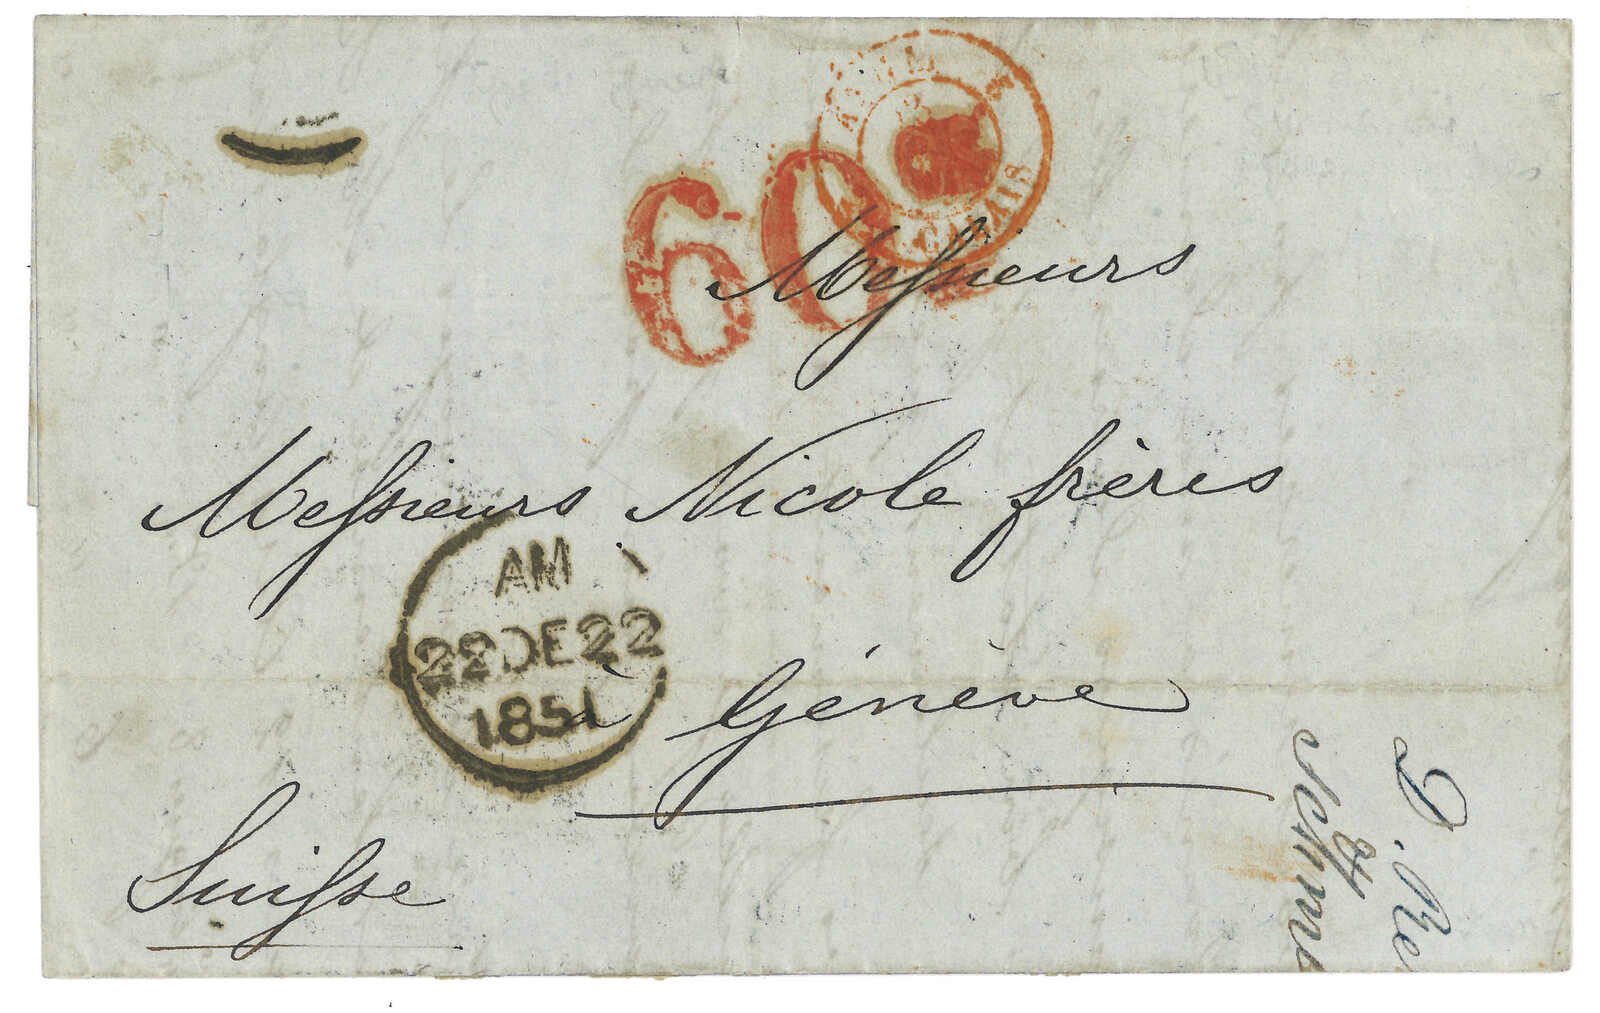 60
CALAIS
Messieurs
Messieurs Nicole frères
AM
22 DE 22
1851
à Génève
Suisse